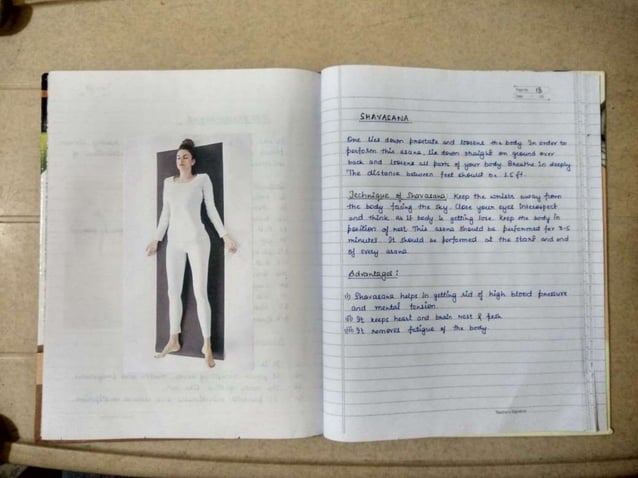 Page No. 13
Date
SHAVASANA
One lies down prostate and loosens one body. In order to
perform this asana, lie down straight on ground over
back and loosens all parts of your body. Breathe in deeply
The distance between feet should be 1.5 ft.
Technique of Shavasana: Keep the wrists away from
the body facing the sky. Close your eyes introspect
and think as if body is getting lose. Keep the body in
position of rest. This asana should be performed for 3-5
minutes. It should be performed at the start and end
of every asana
Advantages :
i) Shavasana helps in getting rid of high blood pressure
and mental tension.
ii) It keeps heart and brain rest & fresh
iii) It removes fatigue of the body.
Teacher's Signature